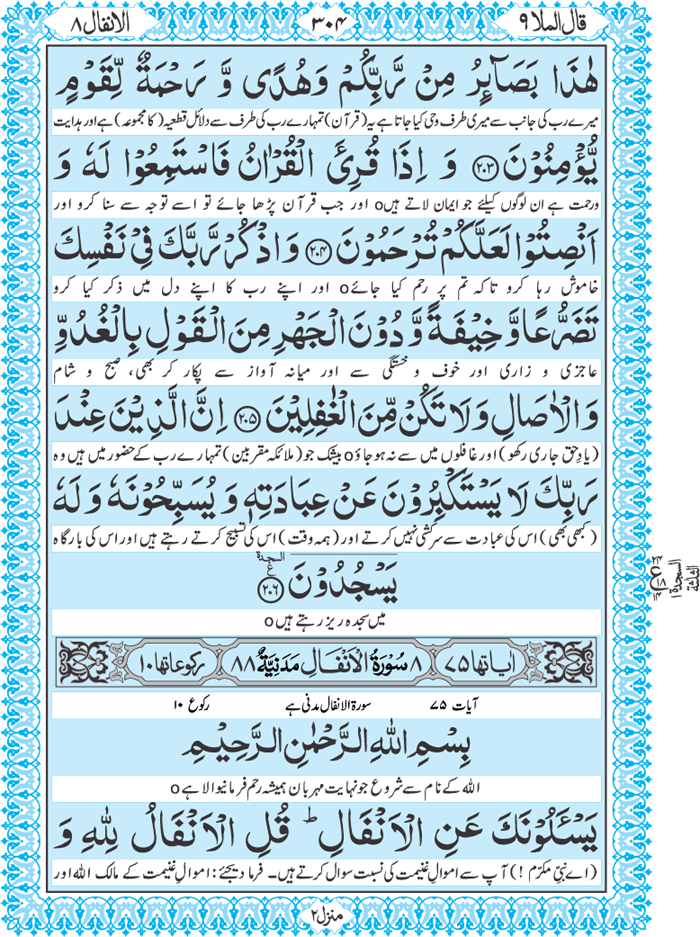 قال الملا ٩
٣٠٤
الانفال ٨
هٰذَا بَصَآئِرُ مِنْ رَّبِّكُمْ وَهُدًى وَّ رَحْمَةٌ لِّقَوْمٍ
میرے رب کی جانب سے میری طرف وحی کیا جاتا ہے یہ (قرآن) تمہارے رب کی طرف سے دلائل قطعیہ (کا مجموعہ) ہے اور ہدایت
يُّؤْمِنُوْنَ ﴿٢٠٣﴾ وَ اِذَا قُرِئَ الْقُرْاٰنُ فَاسْتَمِعُوْا لَهٗ وَ
ورحمت ہے ان لوگوں کیلئے جو ایمان لاتے ہیں o اور جب قرآن پڑھا جائے تو اسے توجہ سے سنا کرو اور
اَنْصِتُوْا لَعَلَّكُمْ تُرْحَمُوْنَ ﴿٢٠٤﴾ وَاذْكُرْ رَّبَّكَ فِيْ نَفْسِكَ
خاموش رہا کرو تاکہ تم پر رحم کیا جائے o اور اپنے رب کا اپنے دل میں ذکر کیا کرو
تَضَرُّعًا وَّ خِيْفَةً وَّ دُوْنَ الْجَهْرِ مِنَ الْقَوْلِ بِالْغُدُوِّ
عاجزی و زاری اور خوف و خستگی سے اور میانہ آواز سے پکار کر بھی، صبح و شام
وَالْاٰصَالِ وَلَا تَكُنْ مِّنَ الْغٰفِلِيْنَ ﴿٢٠٥﴾ اِنَّ الَّذِيْنَ عِنْدَ
(یادِ حق جاری رکھو) اور غافلوں میں سے نہ ہو جاؤ o بیشک جو (ملائکہ مقربین) تمہارے رب کے حضور میں ہیں وہ
رَبِّكَ لَا يَسْتَكْبِرُوْنَ عَنْ عِبَادَتِهٖ وَ يُسَبِّحُوْنَهٗ وَ لَهٗ
(کبھی بھی) اس کی عبادت سے سرکشی نہیں کرتے اور (ہمہ وقت) اس کی تسبیح کرتے رہتے ہیں اور اس کی بارگاہ
يَسْجُدُوْنَ ﴿٢٠٦﴾ السجدة
ع
میں سجدہ ریز رہتے ہیں o
٢٤
ع
١٨
١٤
السجدة ١
الثلثة
اٰیاتها ٧٥
٨ سُوْرَةُ الْاَنْفَالِ مَدَنِيَّةٌ ٨٨
رکوعاتها ١٠
آیات ۷۵
سورۃ الانفال مدنی ہے
رکوع ۱۰
بِسْمِ اللهِ الرَّحْمٰنِ الرَّحِيْمِ
اللہ کے نام سے شروع جو نہایت مہربان ہمیشہ رحم فرمانیوالا ہے o
يَسْـَٔلُوْنَكَ عَنِ الْاَنْفَالِ ؕ قُلِ الْاَنْفَالُ لِلّٰهِ وَ
(اے نبیِّ مکرّم !) آپ سے اموالِ غنیمت کی نسبت سوال کرتے ہیں۔ فرما دیجئے : اموالِ غنیمت کے مالک اللہ اور
منزل ٢